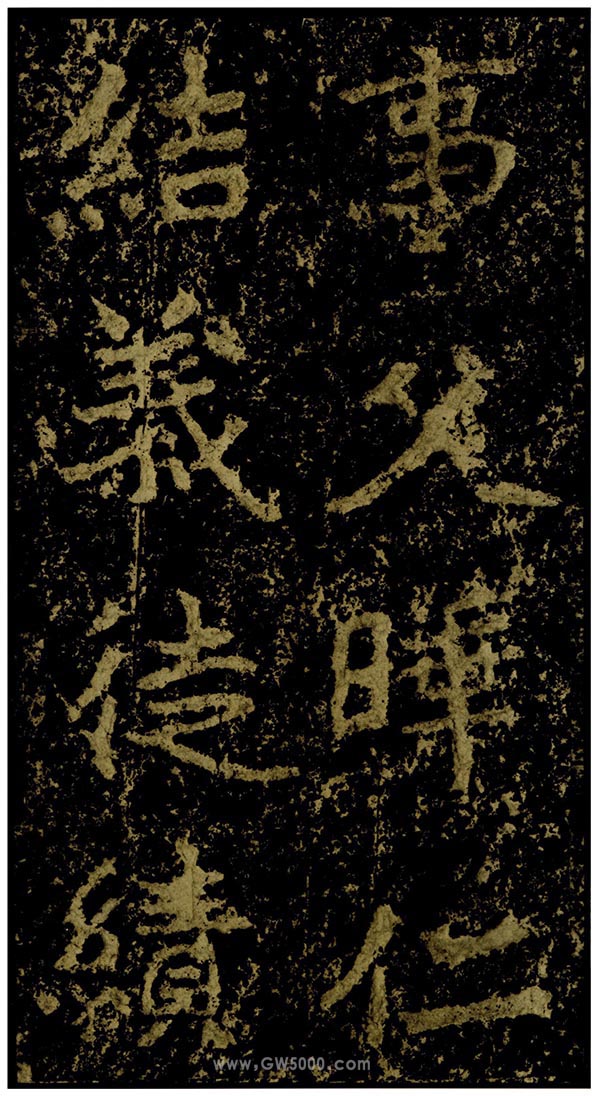 事父曄仁
結義徒績
www.GW5000.com